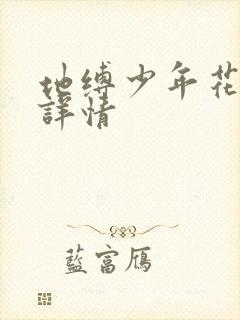 地缚少年花
詳情
藍富鴈